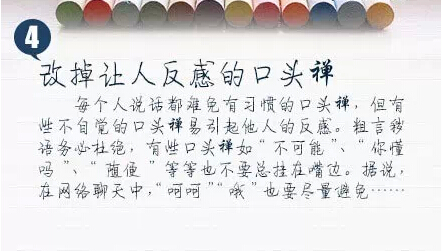 4
改掉让人反感的口头禅
每个人说话都难免有习惯的口头禅，但有
些不自觉的口头禅易引起他人的反感。粗言秽
语务必杜绝，有些口头禅如“不可能”、“你懂
吗”、“随便”等等也不要总挂在嘴边。据说，
在网络聊天中，“呵呵”“哦”也要尽量避免……